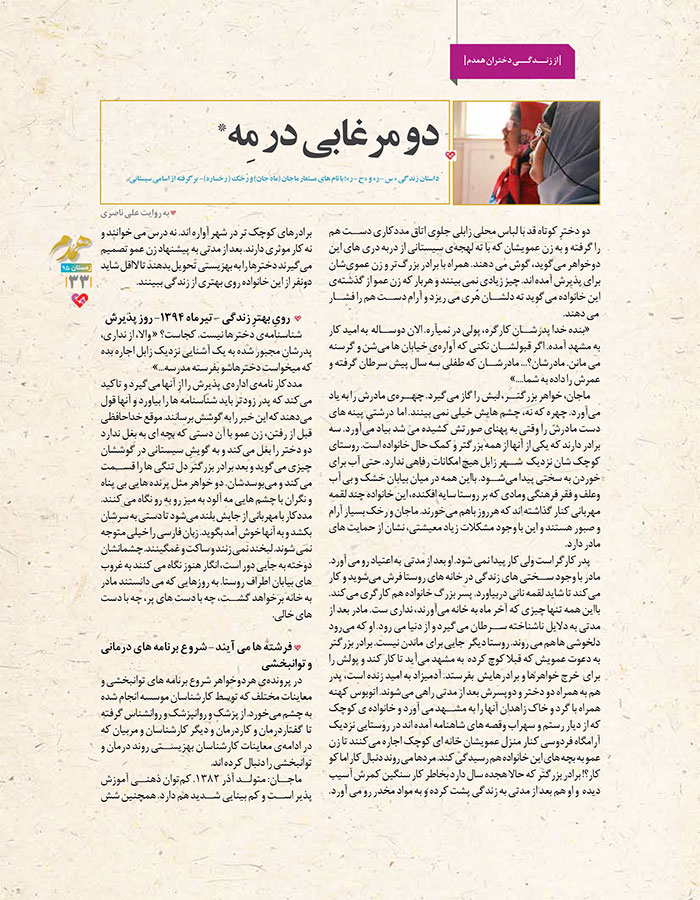 |از زنـــدگـــی دختران همدم|
دو مرغابی در مِه*
داستان زندگی «س-ر» و «ح-ر»؛ با نام های مستعار ماجان (ماه جان) و رُخَک (رخساره) - برگرفته از اسامی سیستانی.
به روایت علی ناصری
همدم
زمستان ۹۵
۳۳
دو دختر کوتاه قد با لباس محلی زابلی جلوی اتاق مددکاری دست هم
را گرفته و به زن عمویشان که با ته لهجه‌ی سیستانی از دربه دری های این
دوخواهر می‌گوید، گوش می دهند. همراه با برادر بزرگ تر و زن عموی‌شان
برای پذیرش آمده اند. چیز زیادی نمی بینند و هربار که زن عمو از گذشته‌ی
این خانواده می‌گوید ته دلشان هُری می ریزد و آرام دست هم را فشار
می دهند.
«بنده خدا پدرشان کارگره، پولی در نمیآره. الان دوساله به امید کار
به مشهد آمده. اگر قبولشان نکنی که آواره‌ی خیابان ها می‌شن و گرسنه
می مانن. مادرشان؟... مادرشان که طفلی سه سال پیش سرطان گرفته و
عمرش را داده به شما....»
ماجان، خواهر بزرگ تر، لبش را گاز می‌گیرد. چهره‌ی مادرش را به یاد
می‌آورد. چهره که نه، چشم هایش خیلی نمی بینند. اما درشتی پینه های
دست مادرش را وقتی به پهنای صورتش کشیده می شد بیاد می‌آورد. سه
برادر دارند که یکی از آنها از همه بزرگ تر و کمک حال خانواده است. روستای
کوچک شان نزدیک شهر زابل هیچ امکانات رفاهی ندارد. حتی آب برای
خوردن به سختی پیدا می‌شود. با این همه در میان بیابان خشک و بی آب
و علف و فقر فرهنگی و مادی که بر روستا سایه افکنده، این خانواده چند لقمه
مهربانی کنار گذاشته اند که هر روز با هم می‌خورند. ماجان و رخک بسیار آرام
و صبور هستند و این با وجود مشکلات زیاد معیشتی، نشان از حمایت های
مادر دارد.
پدر کارگر است ولی کار پیدا نمی شود. او بعد از مدتی به اعتیاد رو می آورد.
مادر با وجود سختی های زندگی در خانه های روستا فرش می‌شوید و کار
می‌کند تا شاید لقمه نانی دربیاورد. پسر بزرگ خانواده هم کارگری می کند.
با این همه تنها چیزی که آخر ماه به خانه می‌آورند، نداری ست. مادر بعد از
مدتی به دلایل ناشناخته سرطان می‌گیرد و از دنیا می رود. او که می‌رود
دلخوشی ها هم می روند. روستا دیگر جایی برای ماندن نیست. برادر بزرگ تر
به دعوت عمویش که قبلا کوچ کرده به مشهد می‌آید تا کار کند و پولش را
برای خرج خواهرها و برادرهایش بفرستد. آدمیزاد به امید زنده است، پدر
هم به همراه دو دختر و دوپسرش بعد از مدتی راهی می‌شوند. اتوبوس کهنه
همراه با گرد و خاک زاهدان آنها را به مشهد می آورد و خانواده ی کوچک
که از دیار رستم و سهراب و قصه های شاهنامه آمده اند در روستایی نزدیک
آرامگاه فردوسی کنار منزل عمویشان خانه ای کوچک اجاره می کنند تا زن
عمو به بچه های این خانواده هم رسیدگی کند. مردها می روند دنبال کار اما کو
کار؟! برادر بزرگ تر که حالا هجده سال دارد بخاطر کار سنگین کمرش آسیب
دیده و او هم بعد از مدتی به زندگی پشت کرده و به مواد مخدر رو می آورد.
برادرهای کوچک تر در شهر آواره اند. نه درس می خوانند و
نه کار موثری دارند. بعد از مدتی به پیشنهاد زن عمو تصمیم
می گیرند دخترها را به بهزیستی تحویل بدهند تا لااقل شاید
دونفر از این خانواده روی بهتری از زندگی ببینند.
روی بهترِ زندگی - تیر ماه ۱۳۹۴- روز پذیرش
شناسنامه‌ی دخترها نیست. کجاست؟ «والا، از نداری،
پدرشان مجبور شده به یک آشنایی نزدیک زابل اجاره بده
که میخواست دخترهاشو بفرسته مدرسه...»
مددکار نامه‌ی اداره‌ی پذیرش را از آنها می گیرد و تاکید
می کند که پدر زودتر باید شناسنامه ها را بیاورد و آنها قول
می‌دهند که این خبر را به گوشش برسانند. موقع خداحافظی
قبل از رفتن، زن عمو با آن دستی که بچه ای به بغل ندارد
دو دختر را بغل می‌کند و به گویش سیستانی در گوششان
چیزی می گوید و بعد برادر بزرگ تر دل تنگی ها را قسمت
می کند و می‌بوسدشان. دو خواهر مثل پرنده هایی بی پناه
و نگران با چشم هایی مه آلود به میز رو به رو نگاه می کنند.
مددکار با مهربانی از جایش بلند می‌شود تا دستی به سرشان
بکشد و به آنها خوش آمد بگوید. زبان فارسی را خیلی متوجه
نمی شوند. لبخند نمی زنند و ساکت و غمگینند. چشمانشان
دوخته به جایی دور است، انگار هنوز نگاه می کنند به غروب
های بیابان اطراف روستا. به روزهایی که می دانستند مادر
به خانه بر خواهد گشت، چه با دست های پر، چه با دست
های خالی.
فرشته ها می آیند - شروع برنامه های درمانی
و توانبخشی
در پرونده‌ی هر دوخواهر شروع برنامه های توانبخشی و
معاینات مختلف که توسط کارشناسان موسسه انجام شده
به چشم می‌خورد. از پزشک و روانپزشک و روانشناس گرفته
تا گفتاردرمان و کاردرمان و دیگر کارشناسان و مربیان که
در ادامه‌ی معاینات کارشناسان بهزیستی روند درمان و
توانبخشی را دنبال کرده اند.
ماجـان: متولـد آذر ۱۳۸۲. کم توان ذهنـی آموزش
پذیر است و کم بینایی شـدید هم دارد. همچنین شش